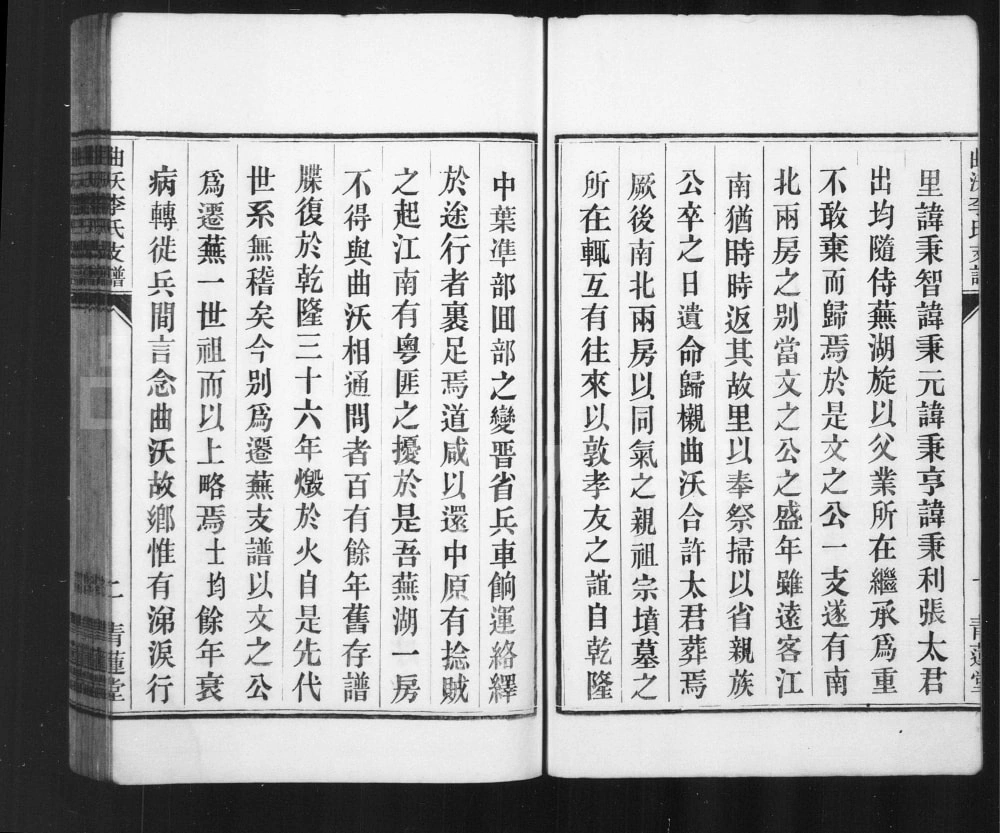 里諱秉智諱秉元諱秉亨諱秉利張太君
出均隨侍蕪湖旋以父業所在繼承爲重
不敢棄而歸焉於是文之公一支遂有南
北兩房之別當文之公之盛年雖遠客江
南猶時時返其故里以奉祭掃以省親族
公卒之日遺命歸櫬曲沃合許太君葬焉
厥後南北兩房以同氣之親祖宗墳墓之
所在輒互有往來以敦孝友之誼自乾隆
中葉準部囬部之變晋省兵車餉運絡繹
於途行者裹足焉道咸以還中原有捻賊
之起江南有粵匪之擾於是吾蕪湖一房
不得與曲沃相通問者百有餘年舊存譜
牒復於乾隆三十六年燬於火自是先代
世系無稽矣今別爲遷蕪支譜以文之公
爲遷蕪一世祖而以上略焉士均餘年衰
病轉徙兵間言念曲沃故鄉惟有涕淚行
曲沃李氏支譜
二
青蓮堂